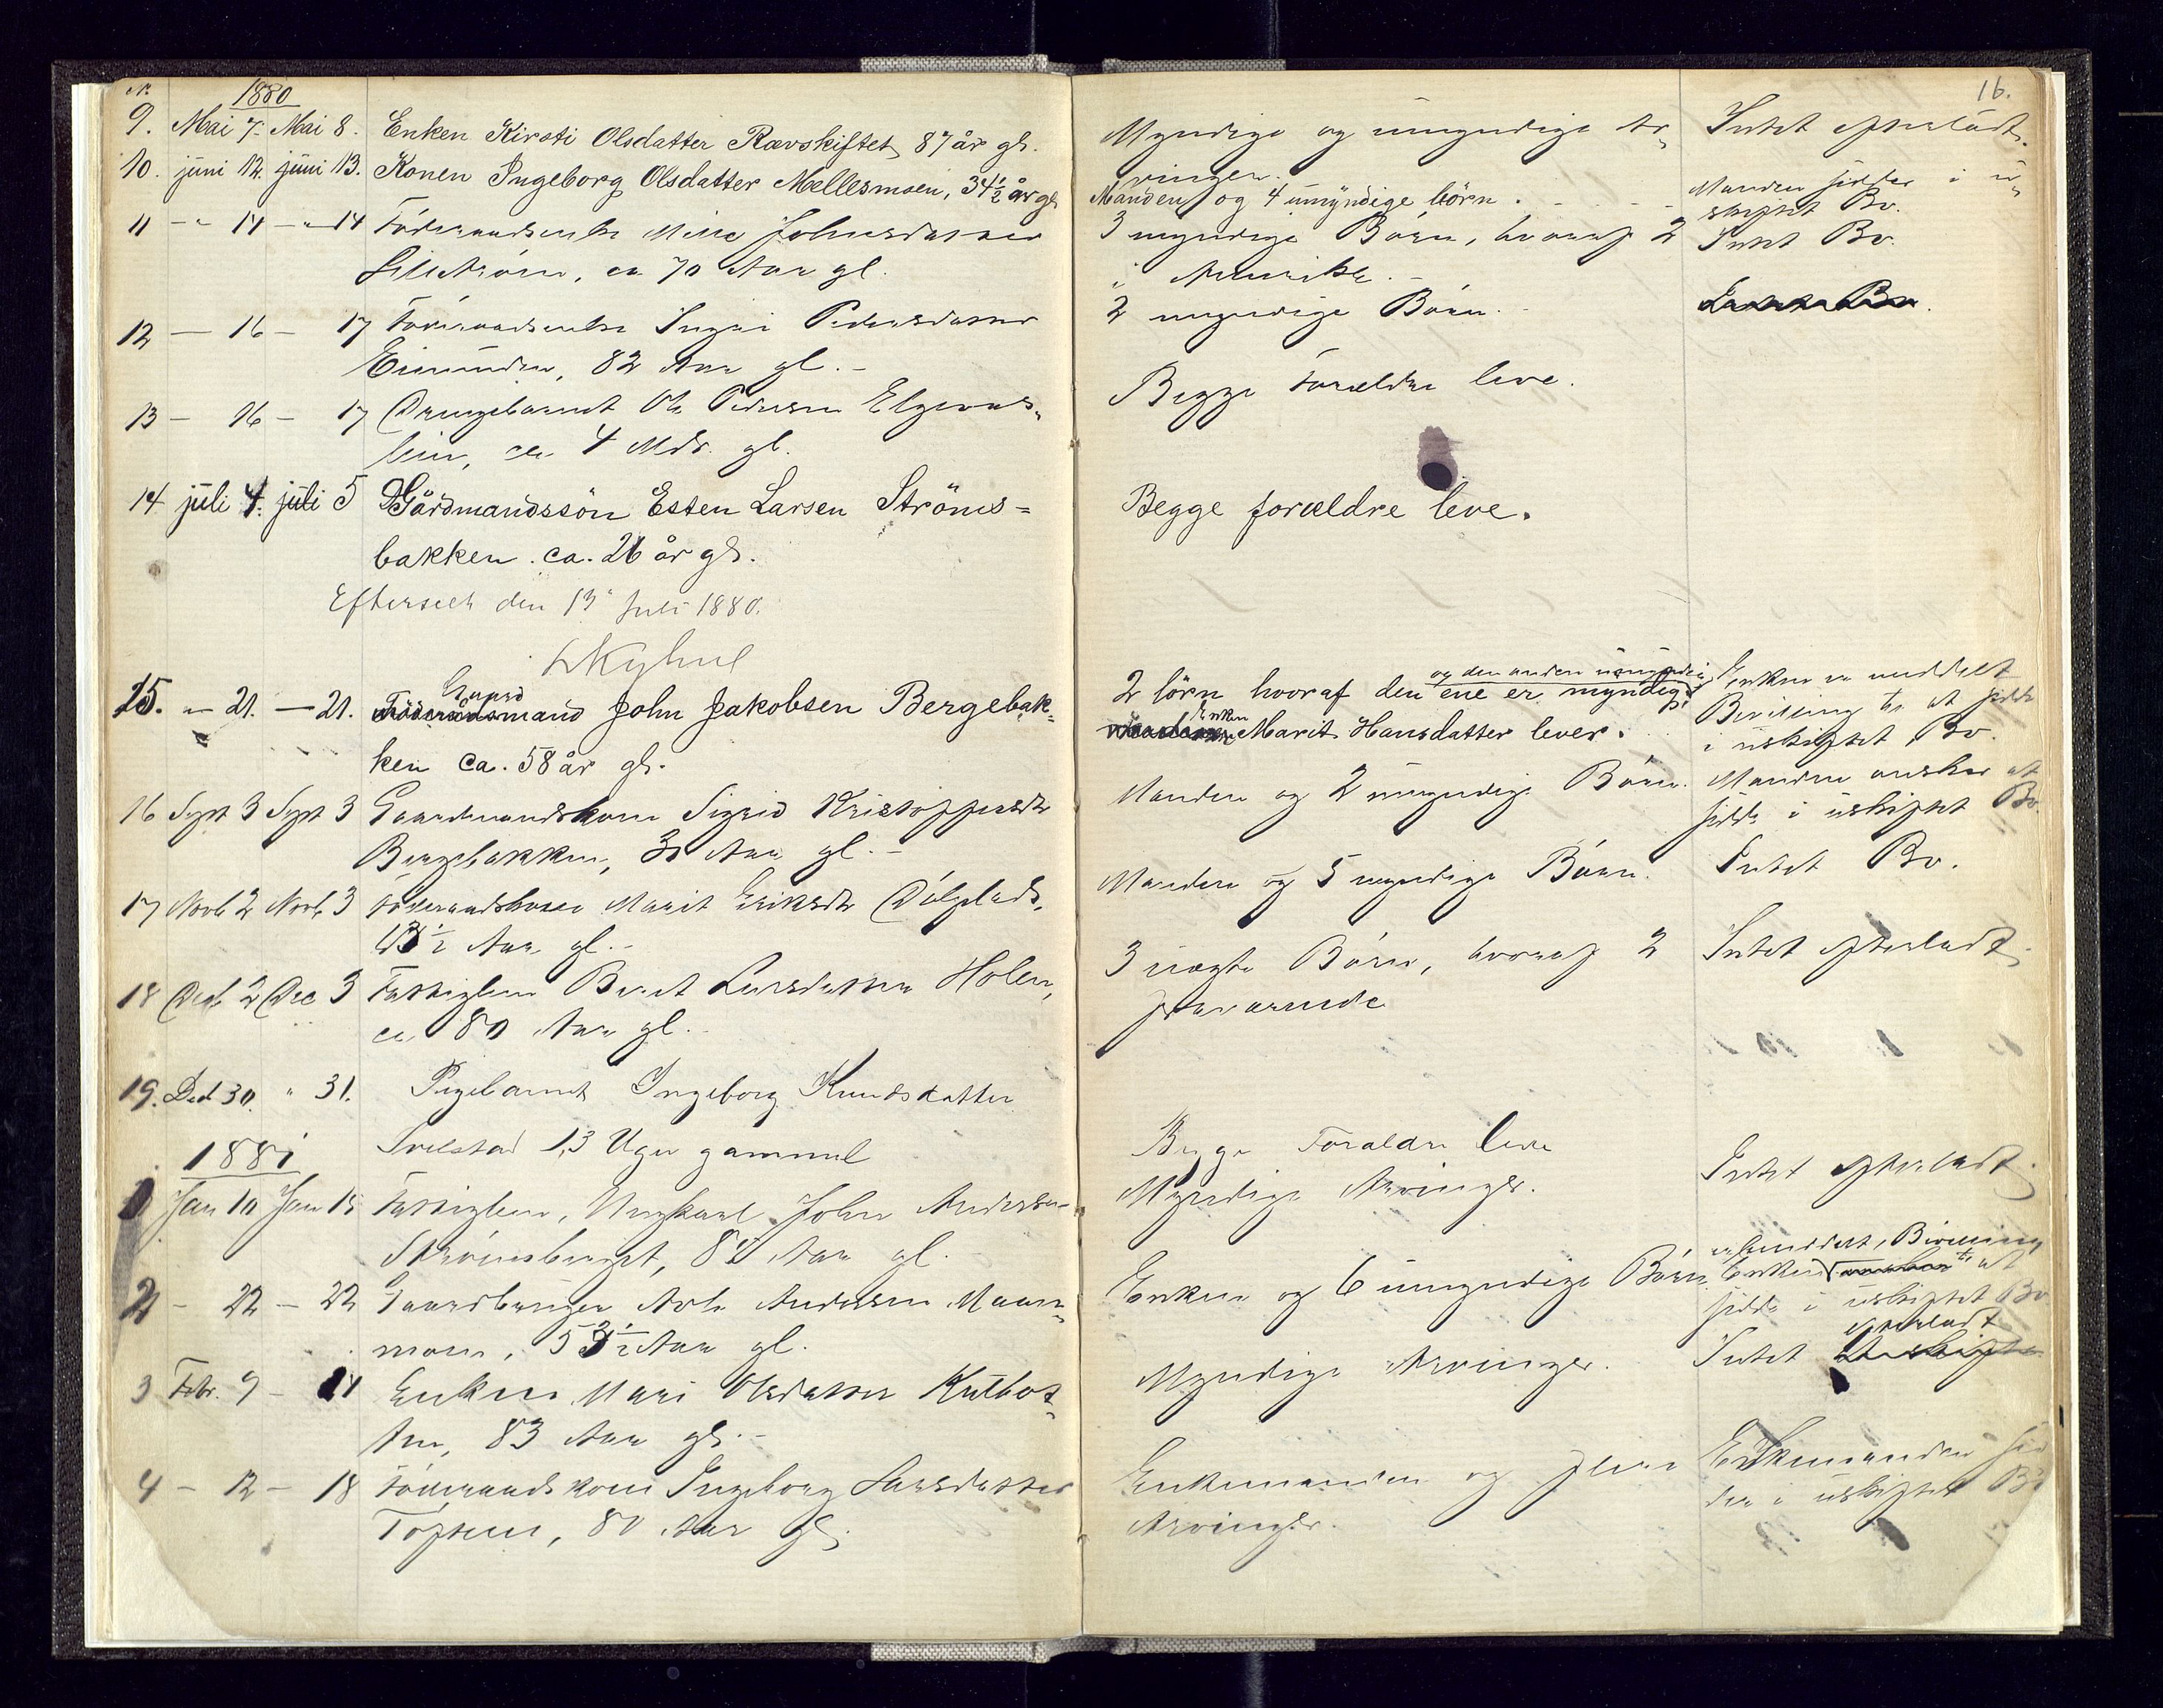 16.
N. 1880
9. Mai 7. Mai 8. Enken Kirsti Olsdatter Rævskiftet, 87 år gl. Myndige og umyndige Ar- Intet efterladt.
vinger.
10. juni 12. juni 13. Konen Ingeborg Olsdatter Mellesmoen, 34½ år gl. Manden og 4 umyndige börn. Manden sidder i u-
skiftet Bo.
11 - " 14 - " 14 Föderaadsenke Johnsdatter 3 myndige Börn, hvoraf 2 Intet Bo.
ca 70 Aar gl. i Amerika.
12 - 16 - 17 Föderaadsenke Ingri Pedersdatter 2 myndige Börn.
Eimunden, 82 Aar gl.
13 - 16 - 17 Drengebarnet Ole Pedersen Elgvas- Begge Forældre leve.
lien, ca 4 Mdr. gl.
14 juli 4. juli 5 Gårdmandssön Esten Larsen Ströms= Begge forældre leve.
bakken. ca. 26 år gl.
Efterseet den 13 Juli 1880.
15. - 21. - 21. Gaard mand John Jakobsen Bergebak- 2 börn hvoraf den ene er myndig og den anden umyndig, Enken er meddelt
ken ca. 58 år gl. Enken Marit Hansdatter lever. Bevilling til at sidde
i uskiftet Bo.
16 Sept 3 Sept 3 Gaardmandskone Sigrid Kristoffersdr Manden og 2 umyndige Börn. Manden ønsker at
Bergebakken, Aar gl. sidde i uskiftet Bo.
17 Novb 2 Novb 3 Föderaadskone Marit Eriksdr Manden og 5 myndige Börn. Intet Bo.
Aar gl.
18 Decb 2 Dec 3 Fattiglem Beret Larsdatter Holen, 3 uægte Börn, hvoraf 2 Intet efterladt.
ca 80 Aar gl. fraværende
19. Decb 30. " 31. Pigebarnet Ingeborg Knudsdatter
13 Uger gammel Begge Forældre leve
1881
1 Jan 10 Jan 15 Fattiglem, Ungkarl John Andersen Myndige Arvinger. Intet efterladt.
Strömsberget, Aar gl.
2 - 22 - 22 Gaardbruger Andersen Maan- Enken og 6 umyndige Börn Enken er meddelt Bevilling til at
moen, 53½ Aar gl. sidde i uskiftet Bo
3 Febr. 9 - 11 Enken Mari Olsdatter Kulbot- Myndige Arvinger. Intet efterladt
ten, 83 Aar gl.
4 - 12 - 18 Föderaadskone Ingeborg Larsdatter Enkemanden og flere Enkemanden sid
80 Aar gl. Arvinger. der i uskiftet Bo